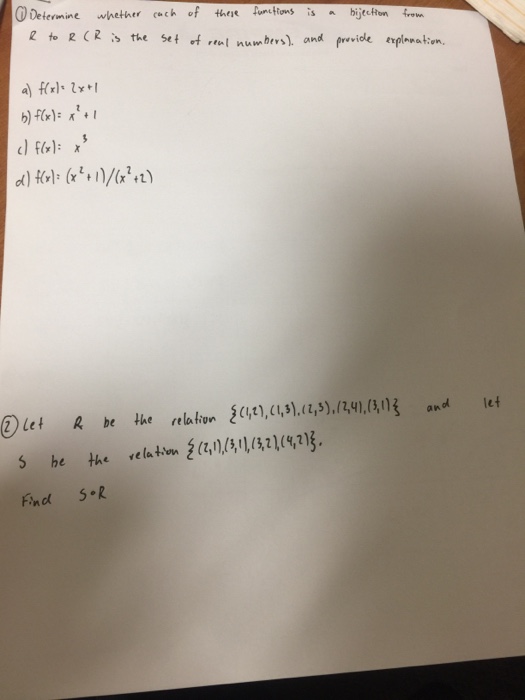 ① Determine whether each of these functions is a bijection from
R to R (R is the set of real numbers). and provide explanation.
a) f(x)= 2x+1
b) f(x)= x²+1
c) f(x): x³
d) f(x)= (x²+1)/(x²+2)
② Let R be the relation {(1,2),(1,3),(2,3),(2,4),(3,1)} and let
S be the relation {(2,1),(3,1),(3,2),(4,2)}.
Find S∘R